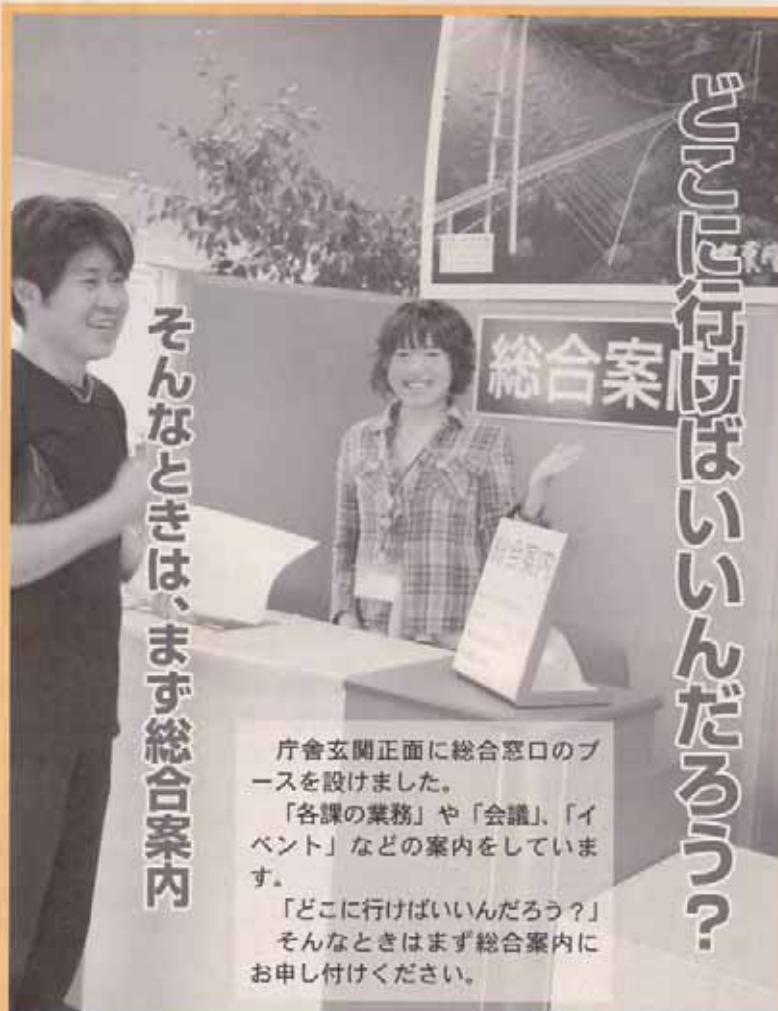 どこに行けばいいんだろう？
そんなときは、まず総合案内
総合案内
総合案内
庁舎玄関正面に総合窓口のブ
ースを設けました。
「各課の業務」や「会議」、「イ
ベント」などの案内をしていま
す。
「どこに行けばいいんだろう？」
そんなときはまず総合案内に
お申し付けください。